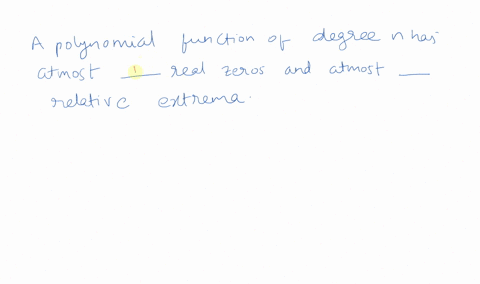 A polynomial function of degree n has
atmost ___ real zeros and atmost ___
relative extrema.